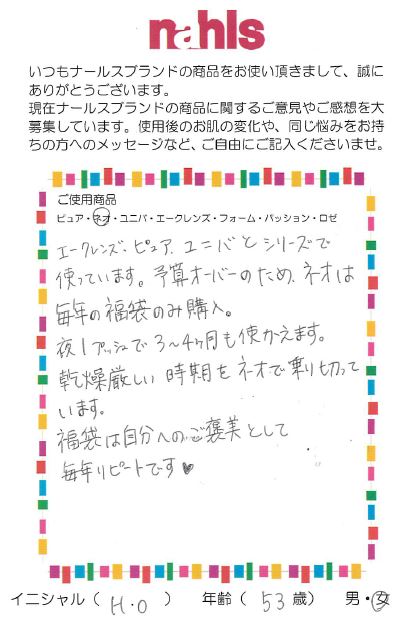 nahls
いつもナールスブランドの商品をお使い頂きまして、誠に
ありがとうございます。
現在ナールスブランドの商品に関するご意見やご感想を大
募集しています。使用後のお肌の変化や、同じ悩みをお持
ちの方へのメッセージなど、ご自由にご記入くださいませ。
ご使用商品
ピュア・ネオ・ユニバ・エークレンズ・フォーム・パッション・ロゼ
エークレンズ、ピュア、ユニバとシリーズで
使っています。予算オーバーのため、ネオは
毎年の福袋のみ購入。
夜1プッシュで3〜4ヶ月も使かえます。
乾燥厳しい時期をネオで乗り切って
います。
福袋は自分へのご褒美として
毎年リピートです♥
イニシャル（ H.O ） 年齢（ 53 歳） 男・女